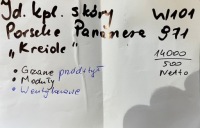 Jd. kpl. skóry W101
Porsche Panamera 971
„Kreiole"
14000
500
Netto
• Grzane przód/tył
• Moduły
• Wentylowane